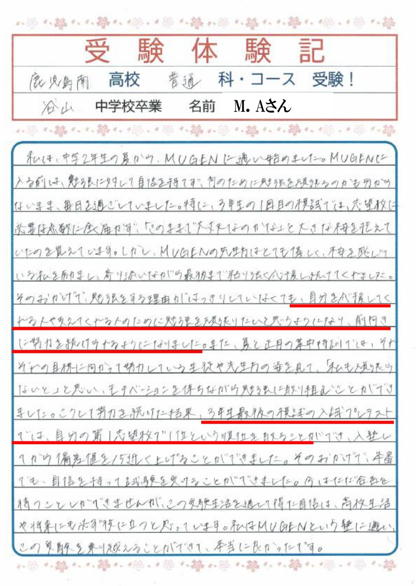 受験体験記
鹿児島南 高校 普通 科・コース 受験！
谷山 中学校卒業 名前 M.Aさん
私は、中学2年生の夏から、MUGENに通い始めました。MUGENに
入る前は、勉強に対して自信を持てず、何のために勉強を頑張るのかも分から
ないまま、毎日を過ごしていました。特に、3年生の1回目の模試では、志望校に
必要な点数に全く届かず、「このままで大丈夫なのかな」と大きな不安を抱えて
いたのを覚えています。しかし、MUGENの先生方はとても優しく、不安を感じて
いる私を励まし、寄り添いながら最後まで粘り強く応援し続けてくれました。
そのおかげで、勉強をする理由がはっきりしていなくても、自分を応援してく
れる人や支えてくれる人のために勉強を頑張りたいと思うようになり、前向き
に努力を続けられるようになりました。また、夏と正月の集中特訓では、それ
ぞれの目標に向かって努力している生徒や先生方の姿を見て、「私も頑張ら
ないと」と思い、モチベーションを保ちながら勉強に取り組むことができ
ました。こうして努力を続けた結果、3年生最後の模試の入試プレテスト
では、自分の第1志望校で1位という順位を取ることができ、入塾し
てから偏差値を15近く上げることができました。そのおかげで、本番
でも、自信を持って試験を受けることができました。今はただ合否を
待つことしかできませんが、この受験生活を通して得た自信は、高校生活
や将来にも必ず役に立つと思っています。私はMUGENという塾に通い、
この受験を乗り越えることができて、本当に良かったです。